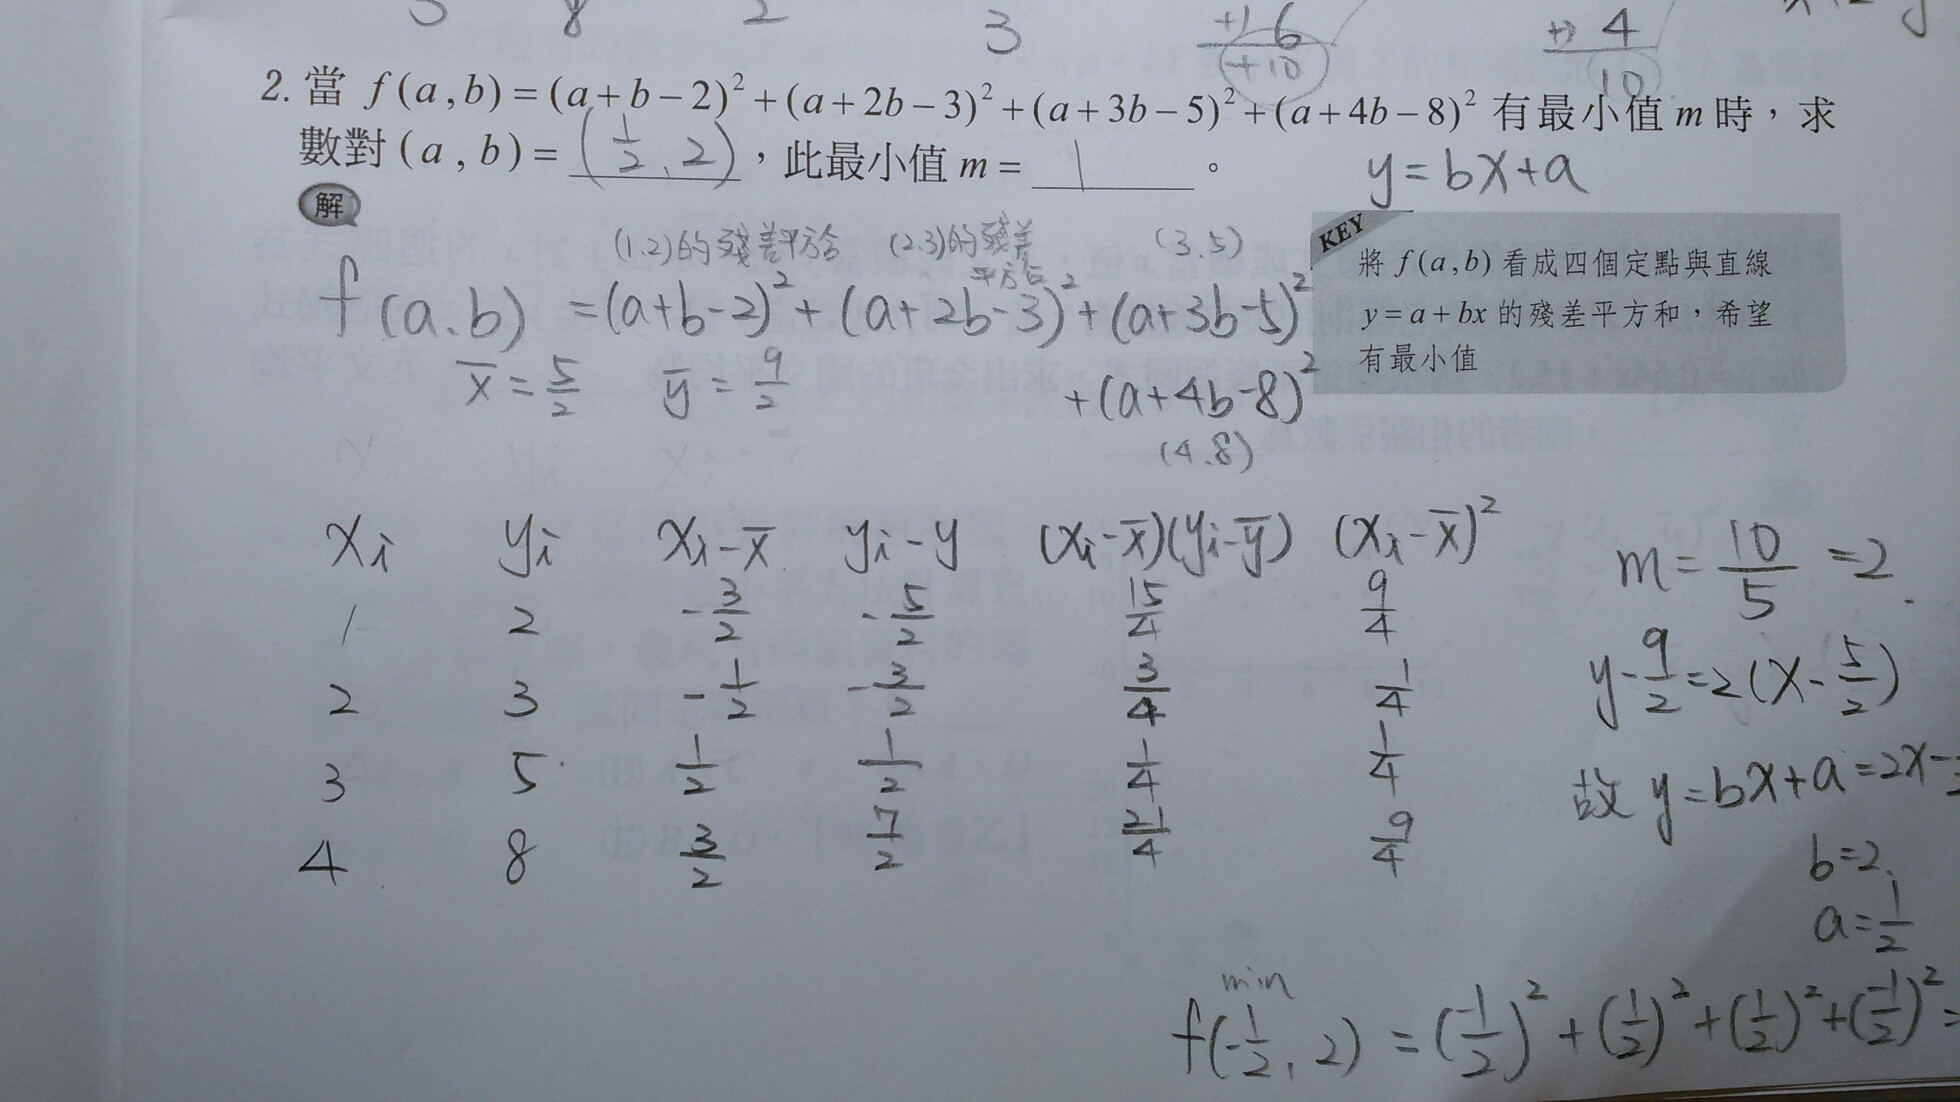 3
+) 6
+10
+) 4
10
2. 當 f(a,b)=(a+b−2)²+(a+2b−3)²+(a+3b−5)²+(a+4b−8)² 有最小值 m 時，求
數對(a,b)=(1/2, 2)，此最小值 m=1。
y=bx+a
解
KEY
將 f(a,b) 看成四個定點與直線
y=a+bx 的殘差平方和，希望
有最小值
(1.2)的殘差平方 (2.3)的殘差平方 (3.5)
f(a.b) =(a+b-2)²+(a+2b-3)²+(a+3b-5)²
+(a+4b-8)²
(4.8)
x̄=5/2 ȳ=9/2
xi yi xi-x̄ yi-y (xi-x̄)(yi-ȳ) (xi-x̄)²
1 2 -3/2 -5/2 15/4 9/4
2 3 -1/2 -3/2 3/4 1/4
3 5 1/2 1/2 1/4 1/4
4 8 3/2 7/2 21/4 9/4
m=10/5=2
y-9/2=2(x-5/2)
故 y=bx+a=2x-
b=2.
a=1/2
min
f(-1/2, 2) = (-1/2)²+(1/2)²+(1/2)²+(-1/2)²=